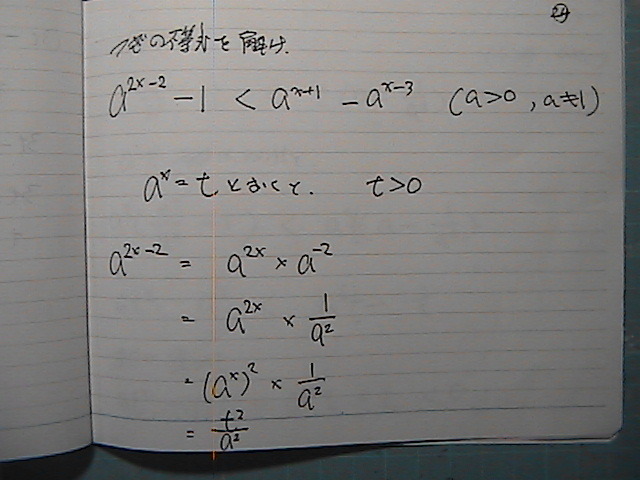 つぎの不等式を解け.
a^{2x-2} - 1 < a^{x+1} - a^{x-3} (a>0, a≠1)
a^x = t とおくと. t>0
a^{2x-2} = a^{2x} × a^{-2}
= a^{2x} × \frac{1}{a^2}
= (a^x)^2 × \frac{1}{a^2}
= \frac{t^2}{a^2}